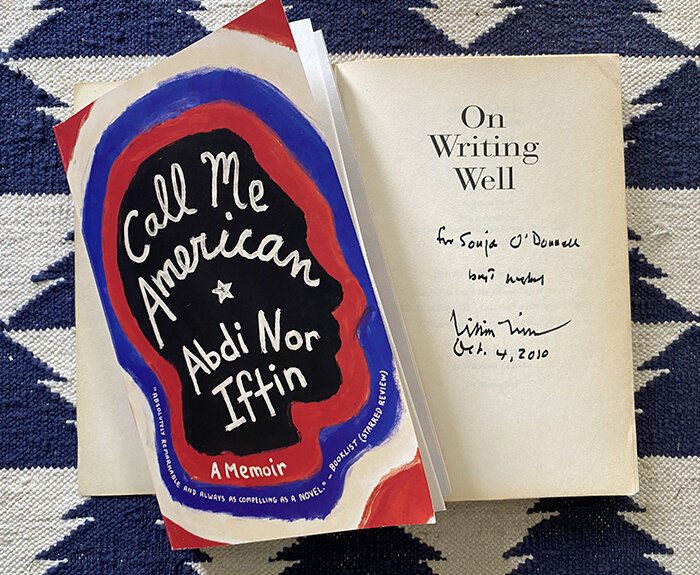 Call Me
American
Abdi Nor
Iftin
A Memoir
"ABSOLUTELY REMARKABLE AND ALWAYS AS COMPELLING AS A NOVEL." — BOOKLIST (STARRED REVIEW)
On
Writing
Well
for Sonja O'Donnell
best wishes
Oct. 4, 2010